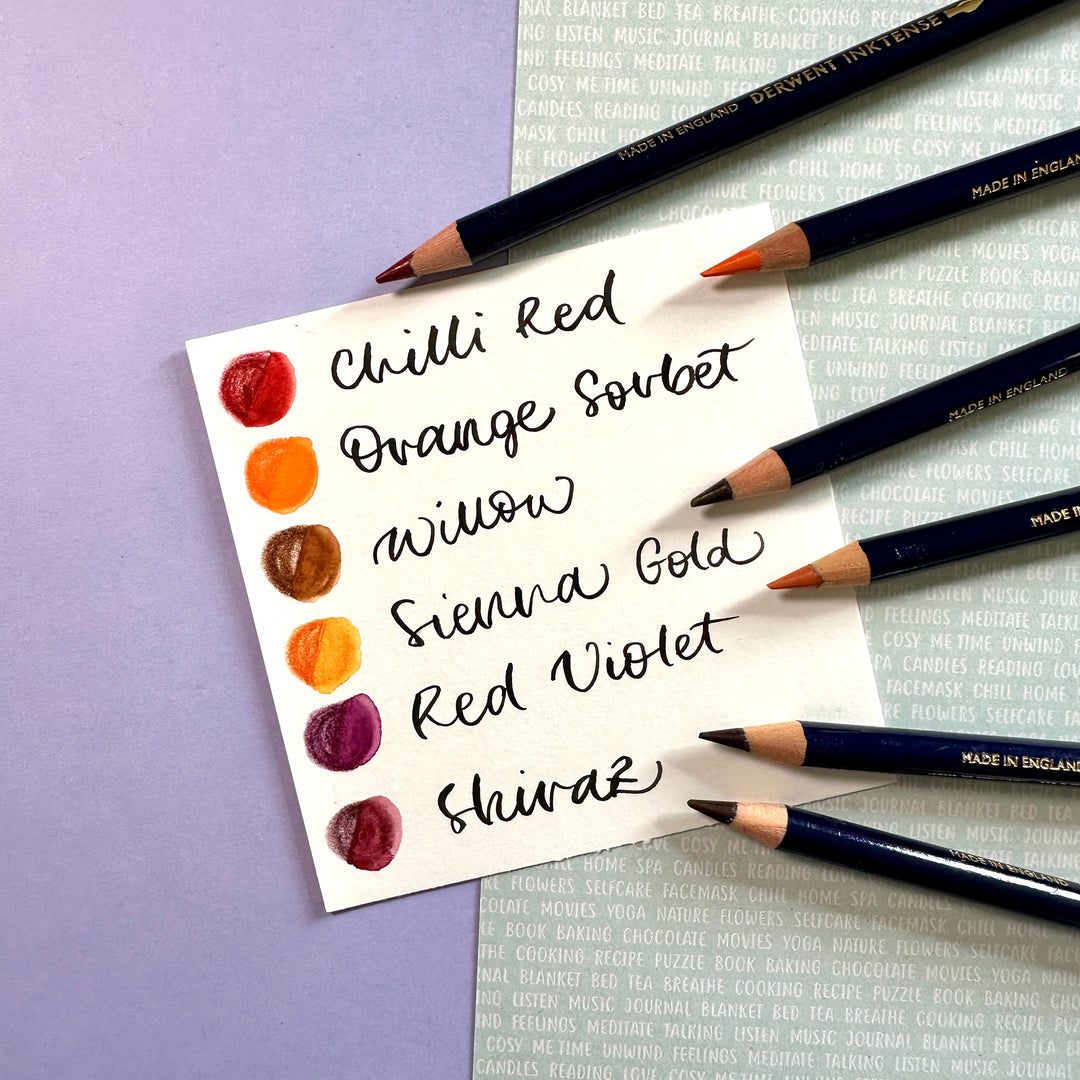 BLANKET BED TEA BREATHE COOKING
LISTEN MUSIC JOURNAL BLANKET BED
FEELINGS MEDITATE TALKING
COSY ME TIME UNWIND
CANDLES READING
MASK CHILL
DERWENT INKTENSE
MADE IN ENGLAND
LISTEN MUSIC
UNWIND FEELINGS MEDITATE
LOVE COSY ME TIME
CHILL HOME SPA
NATURE FLOWERS
MADE IN ENGLAND
BAKING CHOCOLATE
CHOCOLATE MOVIES YOGA
RECIPE PUZZLE BOOK BAKING
BED TEA BREATHE COOKING
LISTEN MUSIC JOURNAL BLANKET
MEDITATE TALKING LISTEN
Chilli Red
Orange Sorbet
Willow
Sienna Gold
Red Violet
Shiraz
MADE IN ENGLAND
NATURE FLOWERS SELFCARE
CHOCOLATE MOVIES YOGA
RECIPE
MADE IN
COSY ME TIME UNWIND
SPA CANDLES READING
FACEMASK CHILL HOME
FLOWERS SELFCARE
MADE IN ENGLAND
LISTEN MUSIC
MADE IN ENGLAND
LOVE COSY ME TIME
CHILL HOME SPA CANDLES READING LOVE
FLOWERS SELFCARE FACEMASK CHILL HOME SPA CANDLES
MOVIES YOGA NATURE FLOWERS SELFCARE FACEMASK CHILL
BOOK BAKING CHOCOLATE MOVIES YOGA NATURE FLOWERS SELFCARE
COOKING RECIPE PUZZLE BOOK BAKING CHOCOLATE MOVIES YOGA
BLANKET BED TEA BREATHE COOKING RECIPE PUZZLE BOOK BAKING
LISTEN MUSIC JOURNAL BLANKET BED TEA BREATHE COOKING RECIPE
FEELINGS MEDITATE TALKING LISTEN MUSIC JOURNAL BLANKET BED TEA
COSY ME TIME UNWIND FEELINGS MEDITATE TALKING LISTEN MUSIC
CANDLES READING LOVE